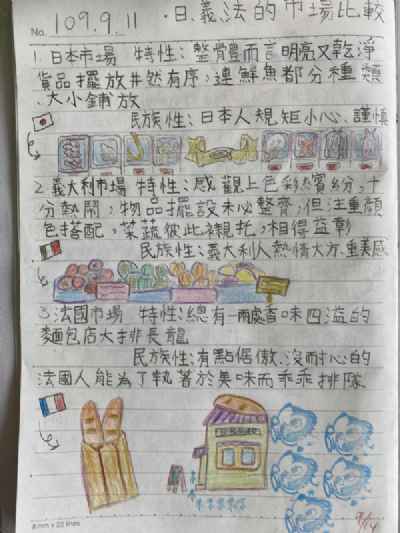 No. 109.9.11 ·日、義、法的市場比較
1.日本市場 特性:整體而言明亮又乾淨
貨品擺放井然有序,連鮮魚都分種類
、大小鋪放
民族性:日本人規矩小心、謹慎
2.義大利市場 特性:感觀上色彩繽紛,十
分熱鬧,物品擺設未必整齊,但注重顏
色搭配,菜蔬彼此襯托,相得益彰
民族性:義大利人熱情大方、重美感
3.法國市場 特性:總有一兩處香味四溢的
麵包店大排長龍
民族性:有點倨傲、沒耐心的
法國人能為了執著於美味而乖乖排隊
9/14
8mm x 22 lines